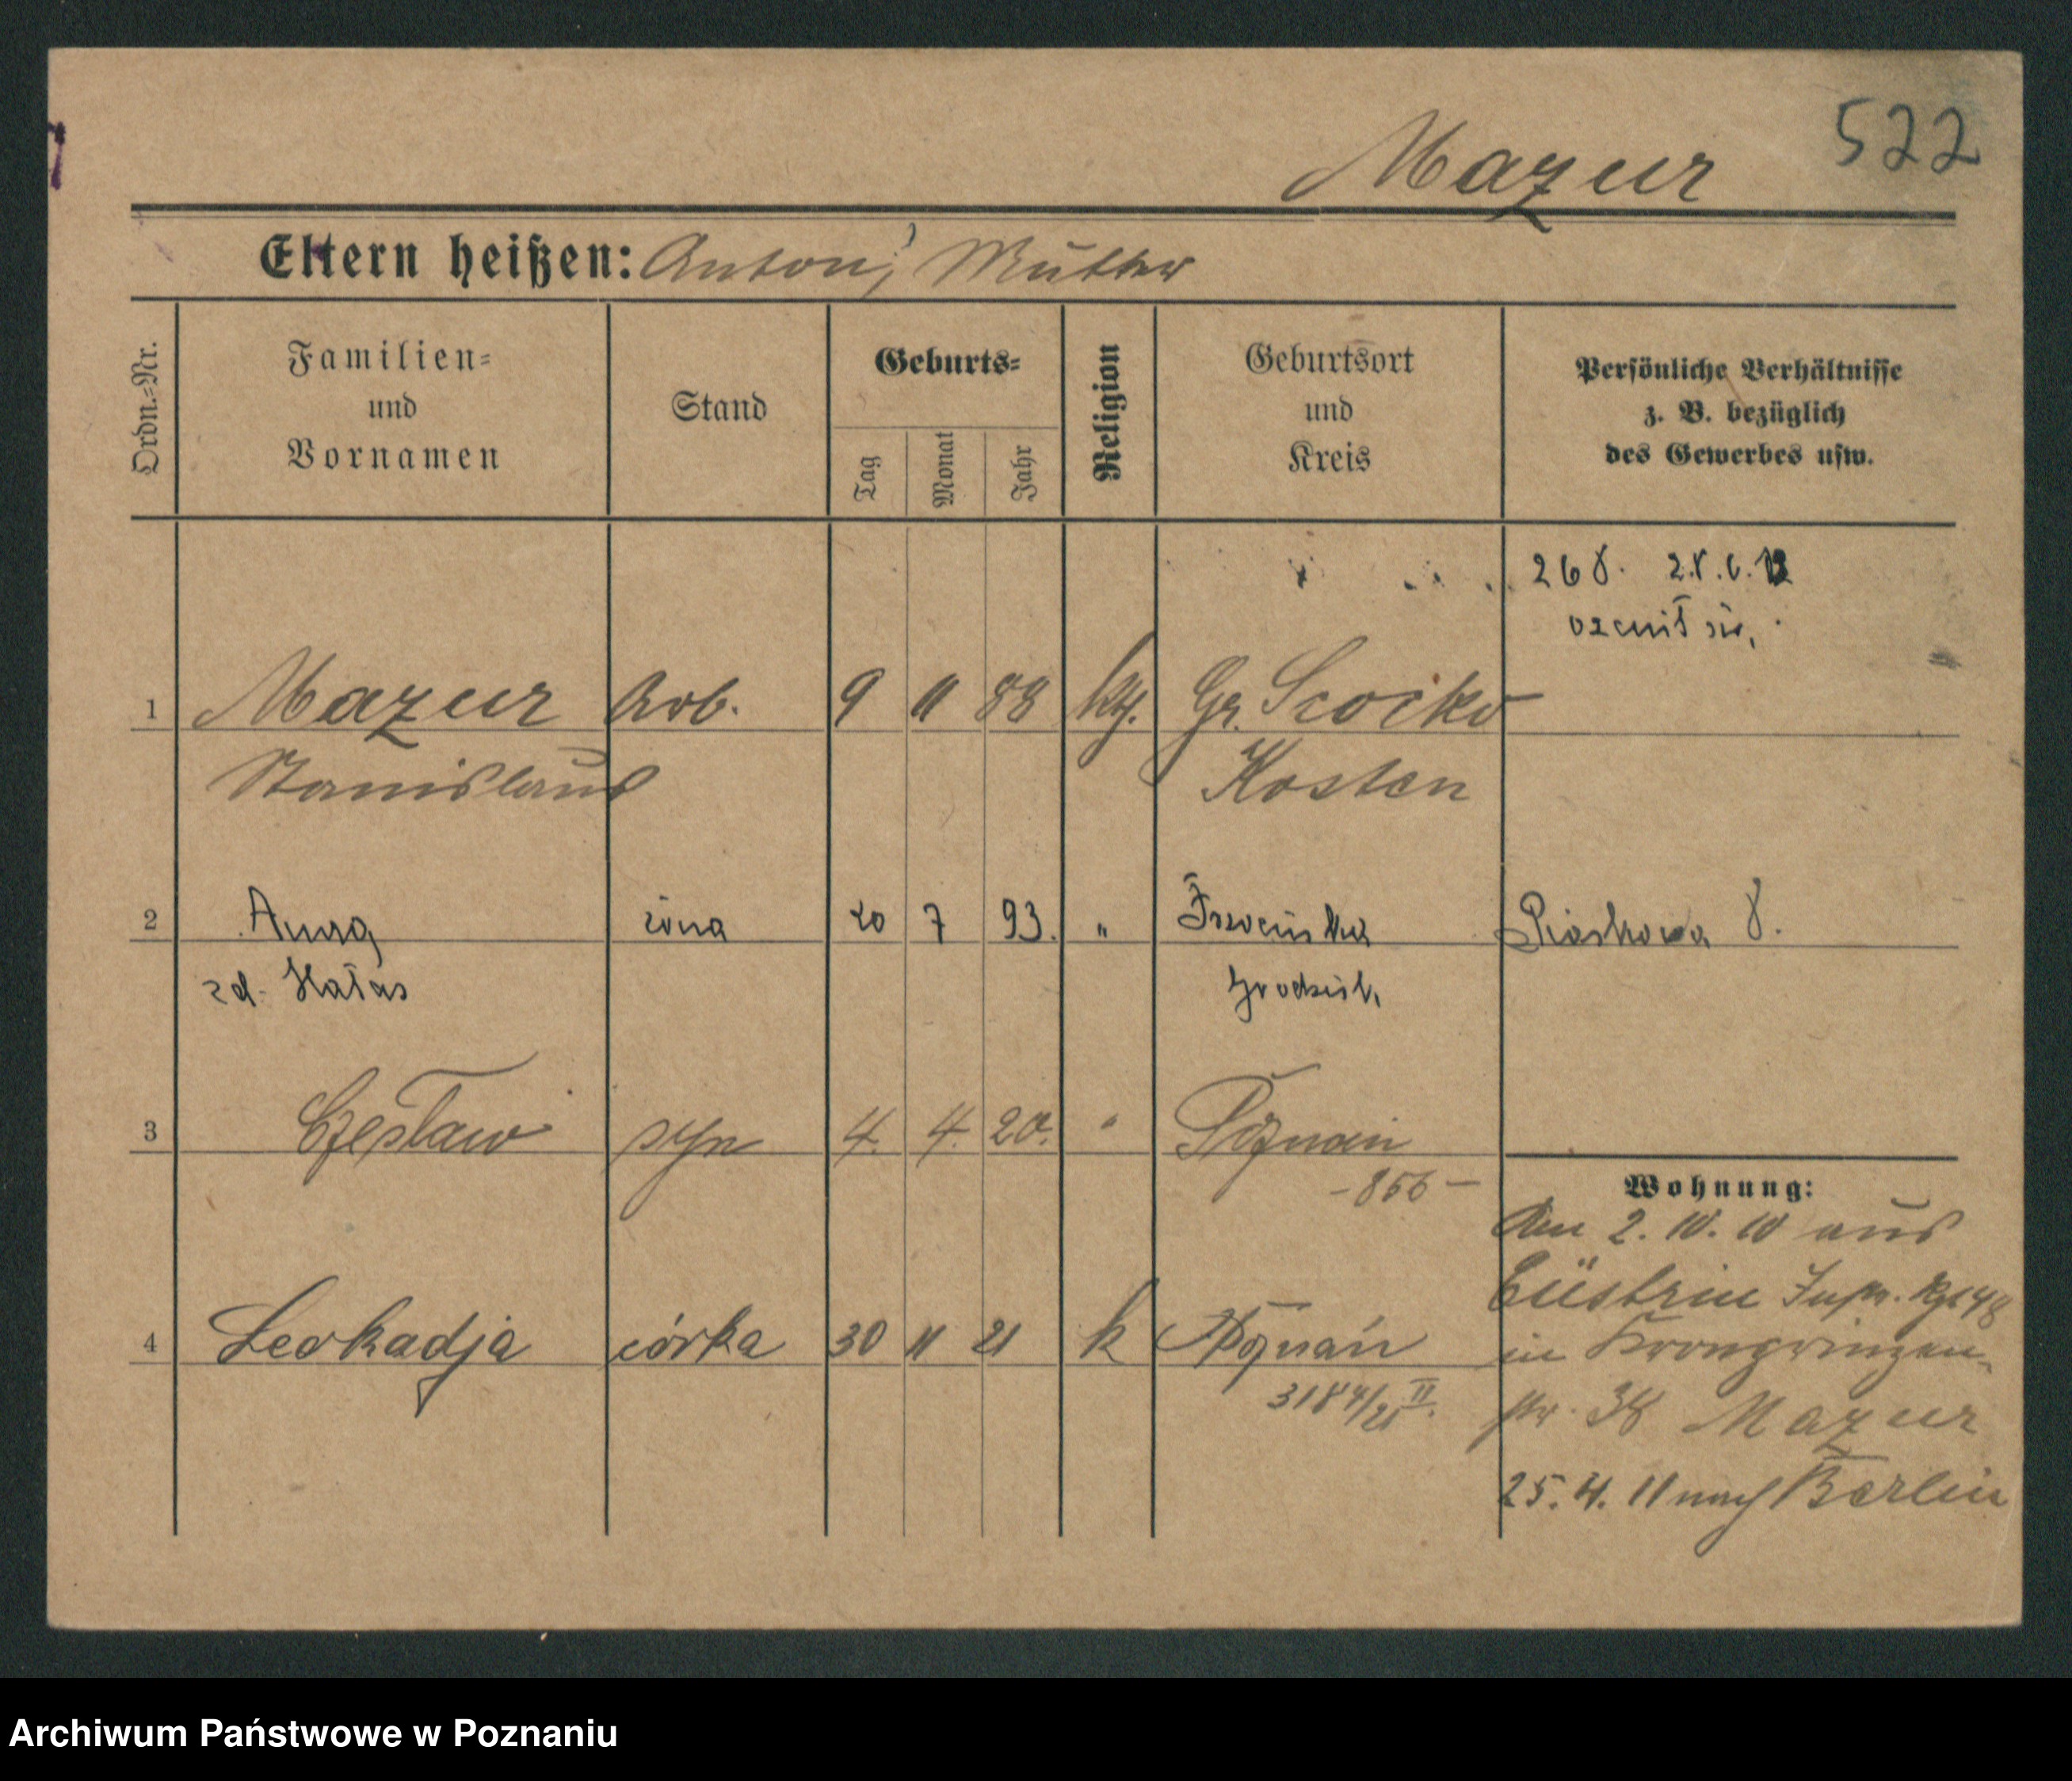 Mazur 522
Eltern heißen: Anton, Mutter
Ordn.=Nr.
Familien=
und
Vornamen
Stand
Geburts=
Tag
Monat
Jahr
Religion
Geburtsort
und
Kreis
Persönliche Verhältnisse
z. B. bezüglich
des Gewerbes usw.
268.
ożenił się.
1 Mazur Arb. 9 11 88 kth. Gr.
Stanislaus Kosten
2 Anna żona 20 7 93. " Piaskowa 8.
zd. Hałas Grodzisk.
3 Czesław syn 4. 4. 20. " Poznań
- 856 -
Wohnung:
Am 2. 10. 10 aus
Cüstrin Inftr. Rgt 48
4 Leokadja córka 30 11 21 k Poznań in Kronprinzen-
3184/21 II. str. 38 Mazur
25. 4. 11 nach Berlin
Archiwum Państwowe w Poznaniu